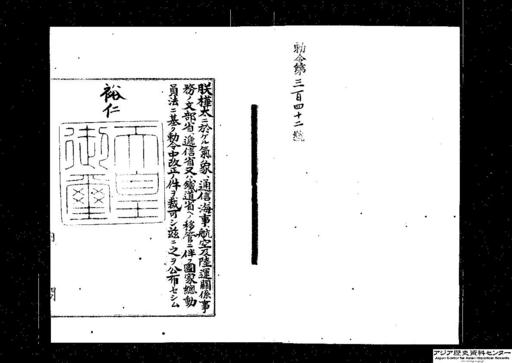 勅令第三百四十二號
朕樺太ニ於ケル氣象、通信、海事、航空及陸運關係事
務ノ文部省、遞信省又ハ鐵道省ヘノ移管ニ伴フ國家總動
員法ニ基ク勅令中改正ノ件ヲ裁可シ茲ニ之ヲ公布セシム
裕仁
天皇御璽
内閣
アジア歴史資料センター
Japan Center for Asian Historical Records